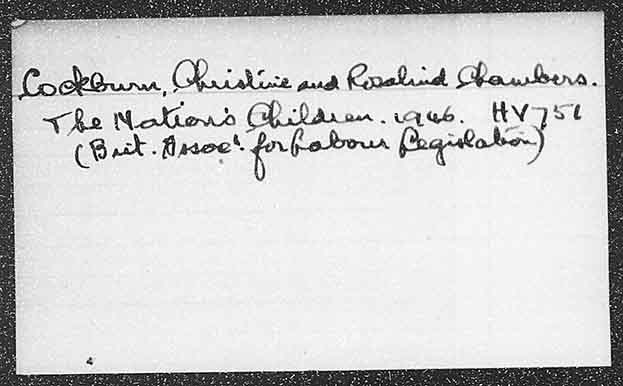 Cockburn, Christine and Rosalind Chambers.
The Nation's Children. 1946. HV751
(Brit. Assoc'. for Labour Legislation)
4